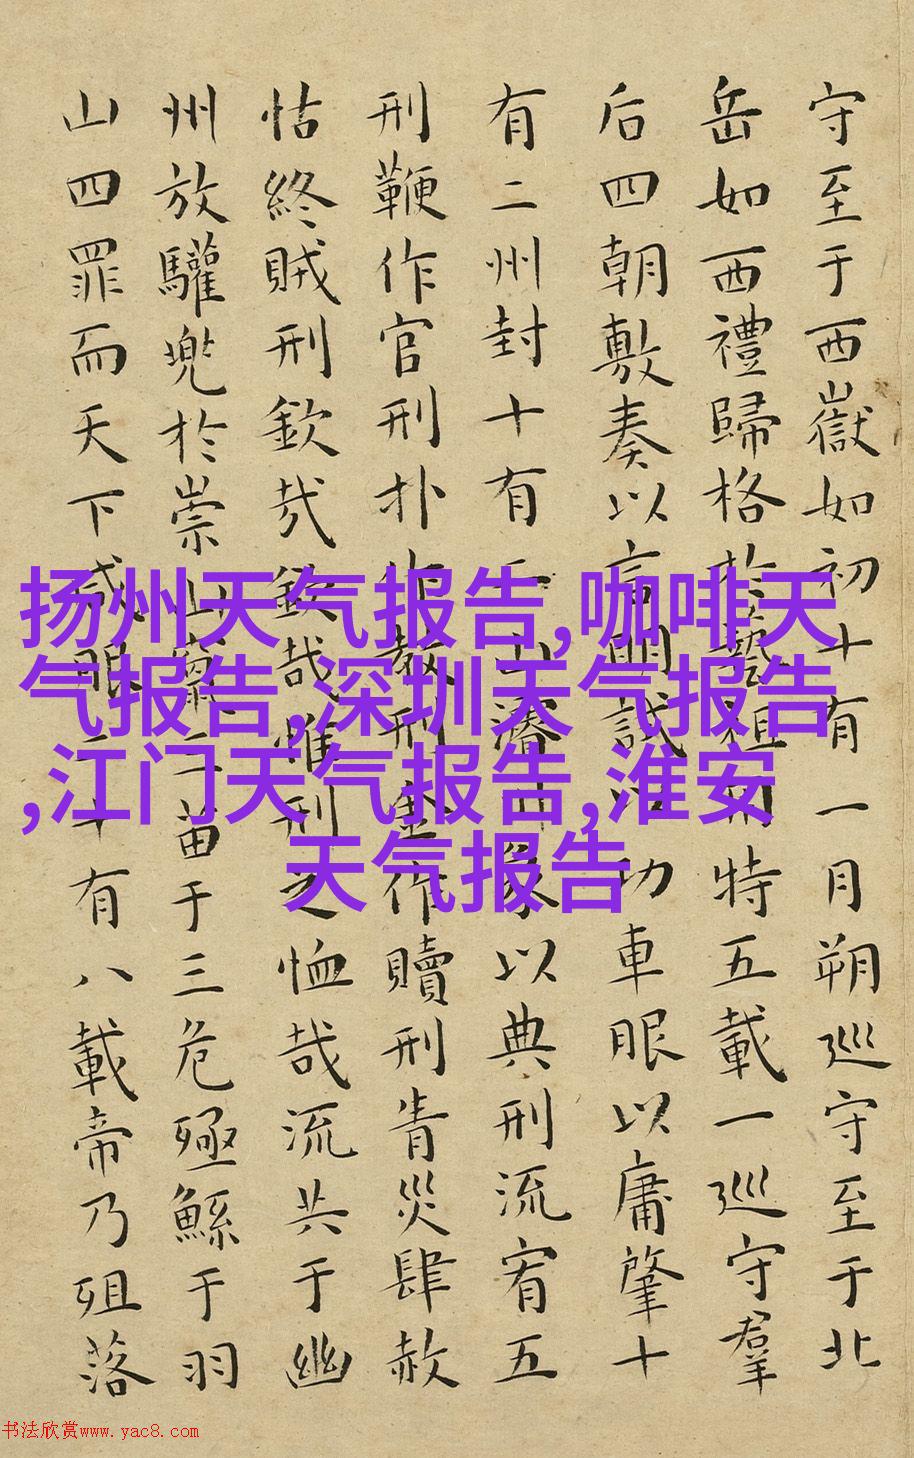 守至于西嶽如初十有一月朔巡守至于北
岳如西禮歸格於藝祖用特五載一巡守羣
后四朝敷奏以言明試以功車眼以庸肇十
有二州封十有二山濬川象以典刑流宥五
刑鞭作官刑扑作教刑金作贖刑眚災肆赦
怙終賊刑欽哉欽哉惟刑之恤哉流共于幽
州放驩兜於崇山竄三苗于三危殛鯀于羽
山四罪而天下咸服二十有八載帝乃殂落
扬州天气报告,咖啡天
气报告,深圳天气报告
,江门天气报告,淮安
天气报告
书法欣赏www.yac8.com